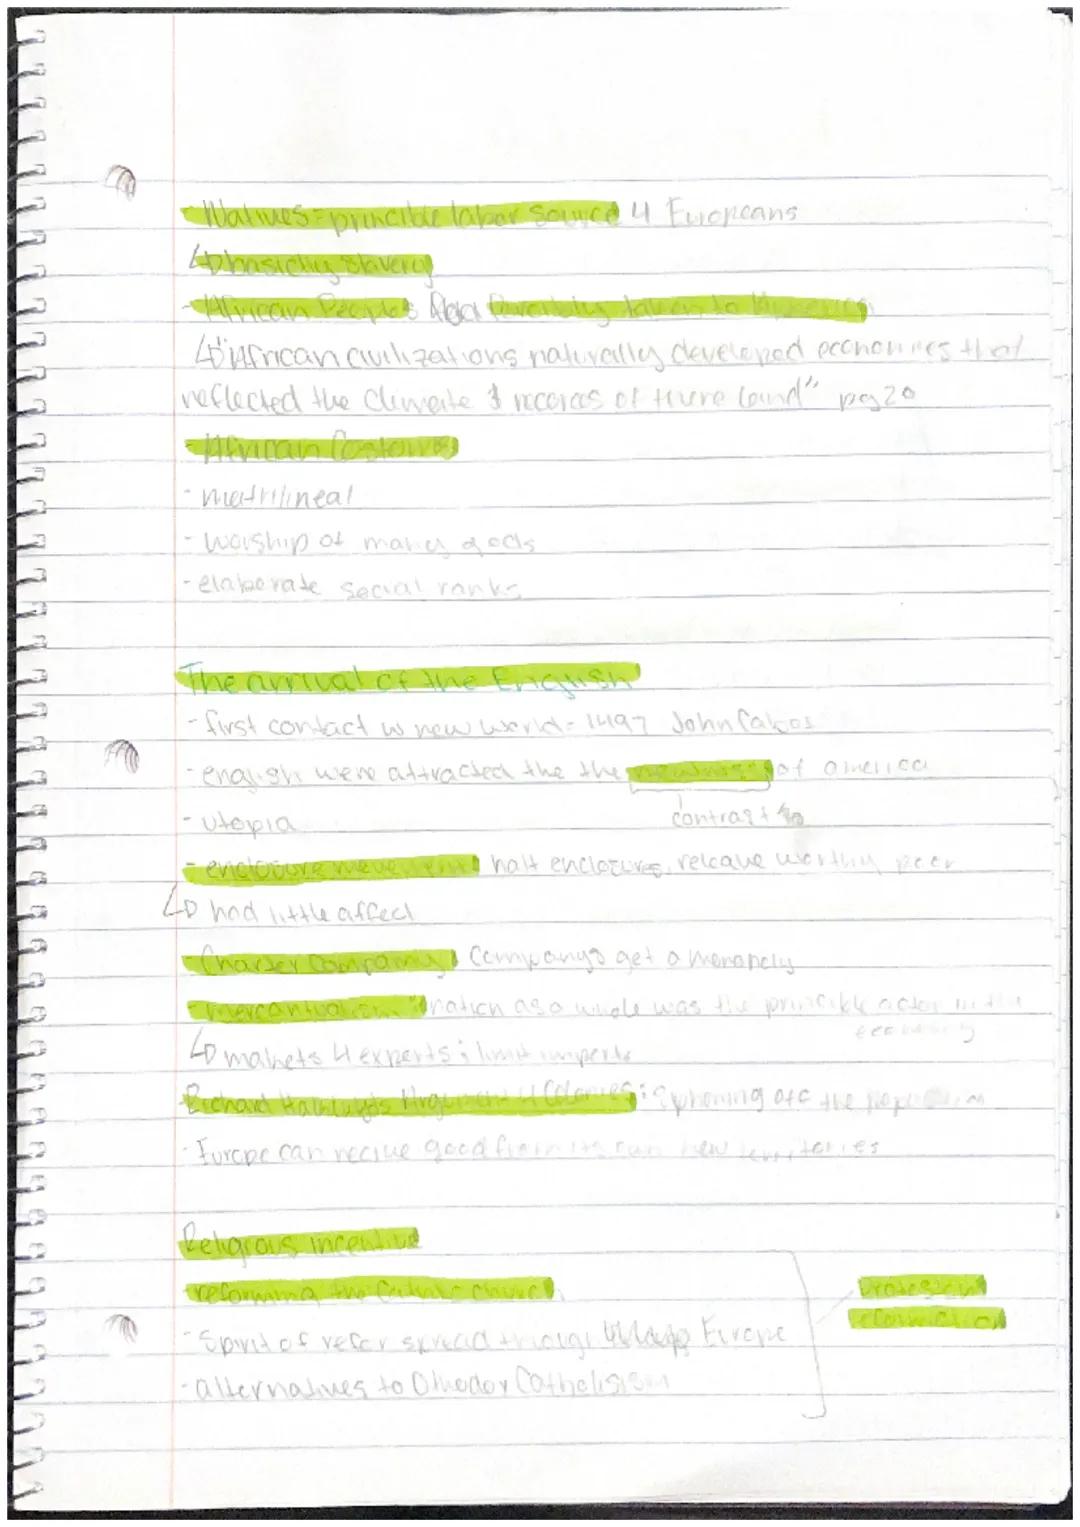 - Natives = principle labor source 4 Europeans
↳ basiclly slavery
- African Peoples forcibly taken to America
↳ "African civilizations naturally developed economies that
reflected the climate & of there land" pg 20
- African Costoms
- matrilineal
- worship of many gods
- elaberate social ranks
The arrival of the English
- first contact w new world - 1497 John Cabos
- english were attracted the the newness of america
- utopia contrast to
- enclosure movement half enclozures, worthy
↳ had little affect
- Charter company Companys get a monopoly
- mercantualism "nation as a whole was the principle actor in the
economy
↳ markets 4 exports ; limit imports
Richard Argument 4 Colonies : off the
- Europe can recive good from its own new territories
Religious incentive
reforming the Catholic church Protestant
- Spirit of refor spread Europe reformation
- alternatives to Othodox Catholisism